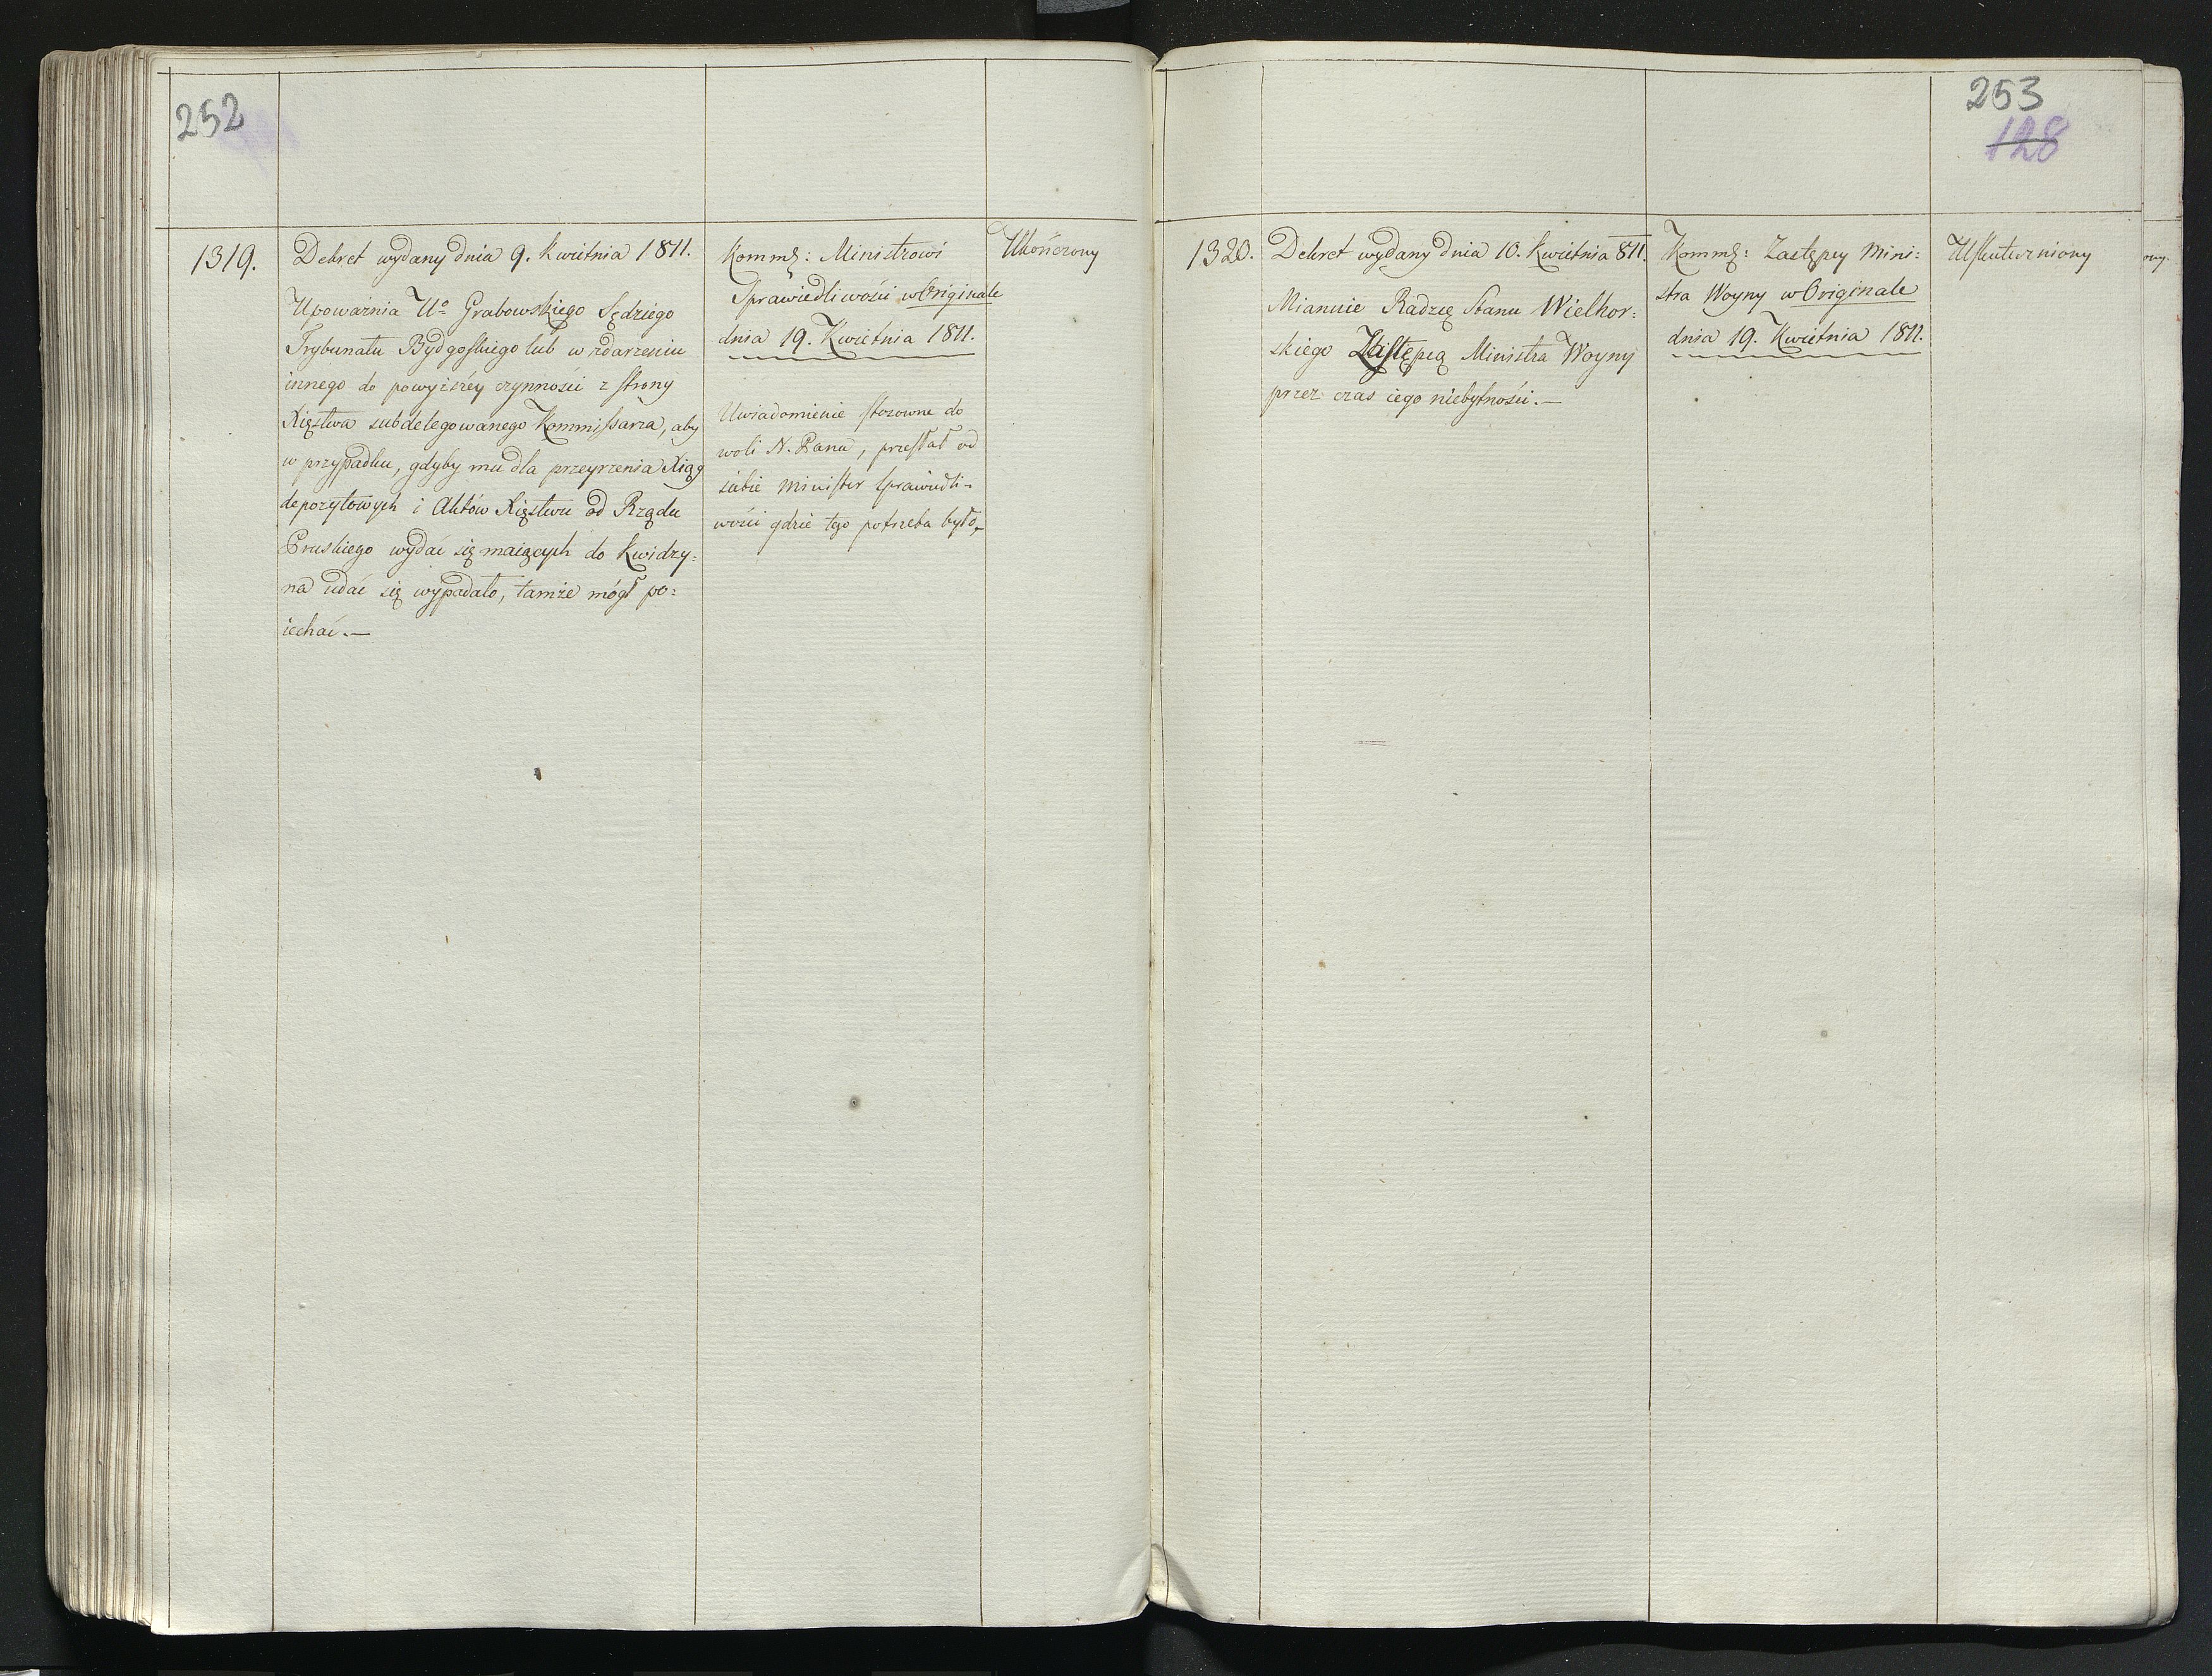 252
1319.
Dekret wydany dnia 9. Kwietnia 1811.
Upoważnia Uo Grabowskiego Sędziego
Trybunału Bydgoskiego lub w zdarzeniu
innego do powyższéy czynności z strony
Xięstwa subdelegowanego Kommissarza, aby
w przypadku, gdyby mu dla przeyrzenia Xiąg
depozytowych i Aktów Xięstwu od Rządu
Pruskiego wydać się maiących do Kwidzy:
na udać się wypadało, tamże mógł po:
iechać.—
Ministrowi
Sprawiedliwości w Originale
dnia 19. Kwietnia 1811.
Uwiadomienie stosowne do
woli N. Pana, przesłał od
siebie Minister Sprawiedli-
wości gdzie tego potrzeba było.
Ukończony
253
128
1320.
Dekret wydany dnia 10. Kwietnia 811.
Mianuie Radzcę Stanu Wielhor:
skiego Zastępcą Ministra Woyny
przez czas iego niebytności.—
Zastępcy Mini:
stra Woyny w Originale
dnia 19. Kwietnia 1811.
Uskuteczniony
ony.